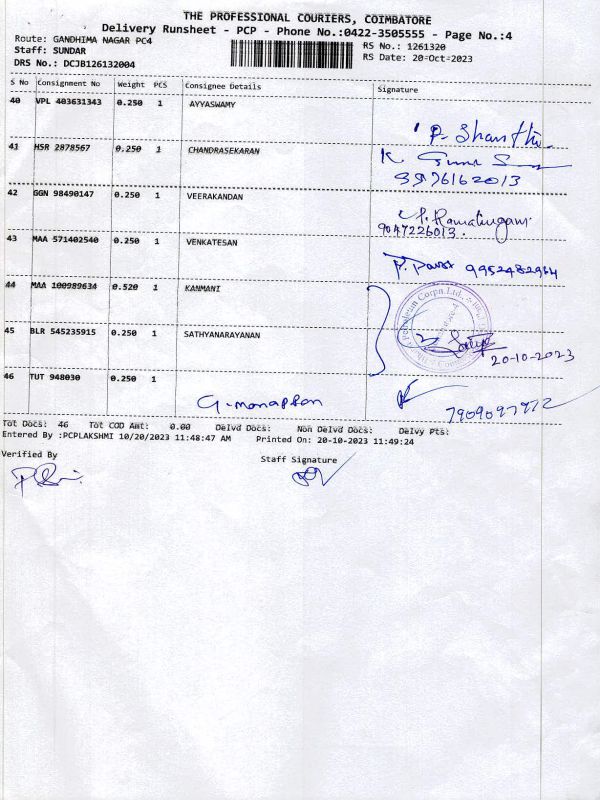 THE PROFESSIONAL COURIERS, COIMBATORE
Delivery Runsheet - PCP - Phone No.:0422-3505555 - Page No.:4
Route: GANDHIMA NAGAR PC4
RS No.: 1261320
Staff: SUNDAR
RS Date: 20-Oct-2023
DRS No.: DCJB126132004
S No Consignment No Weight PCS Consignee Details Signature
40 VPL 403631343 0.250 1 AYYASWAMY
P. Shanthi
41 HSR 2878567 0.250 1 CHANDRASEKARAN
K.
9976162013
42 GGN 98490147 0.250 1 VEERAKANDAN
Ramalingam
9047226013.
43 MAA 571402540 0.250 1 VENKATESAN
9952482964
44 MAA 100989634 0.520 1 KANMANI
Petroleum Corpn.Ltd.
45 BLR 545235915 0.250 1 SATHYANARAYANAN
20-10-2023
46 TUT 948030 0.250 1
G. manapsan
7909097972
Tot Docs: 46 Tot COD Amt: 0.00 Delvd Docs: Non Delvd Docs: Delvy Pts:
Entered By :PCPLAKSHMI 10/20/2023 11:48:47 AM Printed On: 20-10-2023 11:49:24
Verified By
Staff Signature